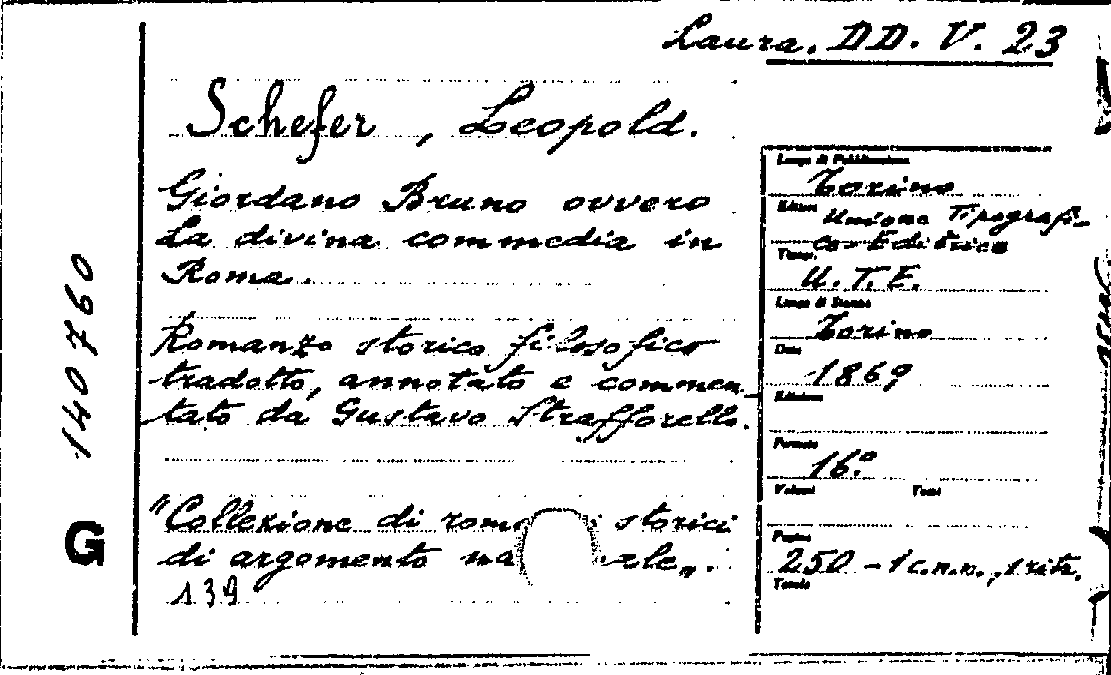 Laura. DD. V. 23
Schefer, Leopold.
Giordano Bruno ovvero
La divina commedia in
Roma.
Romanzo storico filosofico
tradotto, annotato e commen-
tato da Gustavo Strafforello.
"Collezione di storici
di argomento
139
140760
G
Luogo di Pubblicazione
Torino
Editore Unione Tipografi-
co-Editrice
Tipogr.
U.T.E.
Luogo di Stampa
Torino
Data
1869
Edizione
Formato
16º
Volumi Tomi
Pagine
250 - 1 c.n.n., 1 ritr.
Tavole